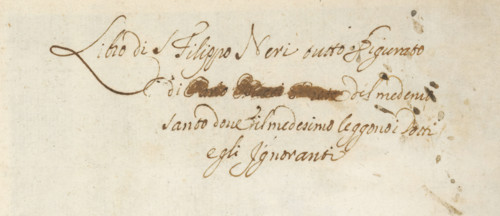 Libro di S Filippo Neri tutto figurato
di del medemo
santo dove il medesimo leggono i Dotti
e gli Ignoranti